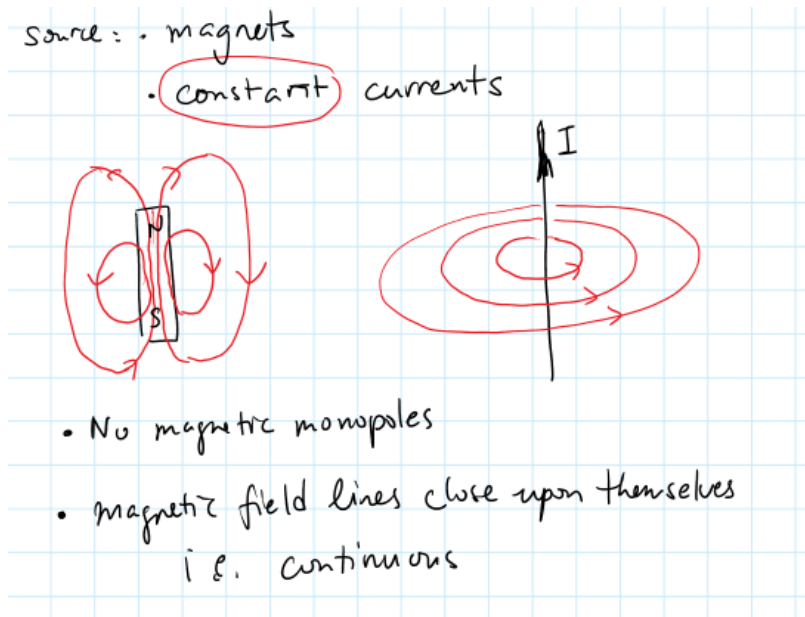 source: · magnets
· constant currents
I
N
S
· No magnetic monopoles
· magnetic field lines close upon themselves
i e. continuous